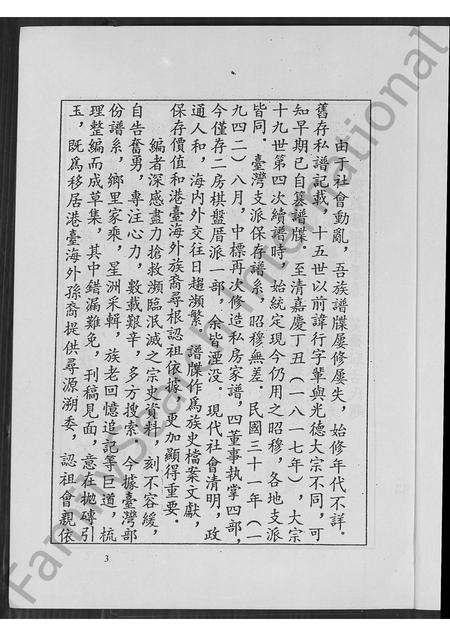 由于社會動亂，吾族譜牒屢修屢失，始修年代不詳。
舊存私譜記載，十五世以前諱行字輩與光德大宗不同，可
知早期已自篡譜牒。至清嘉慶丁丑（一八一七年），大宗
十九世第四次續譜時，始統定現今仍用之昭穆，各地支派
皆同。臺灣支派保存譜系，昭穆無差。民國三十一年（一
九四二）八月，中標再次修造私房家譜，四董事執掌四部，
今僅存二房棋盤厝派一部，余皆湮没。現代社會清明，政
通人和，海内外交往日趨瀕繁。譜牒作爲族史檔案文獻，
保存價值和港臺海外族裔尋根認祖依據，更加顯得重要。
編者深感盡力搶救瀕臨泯滅之宗史資料，刻不容緩，
自告奮勇，專注心力，數載艱辛，多方搜索，今據臺灣部
份譜系，鄉里家乘，星洲采輯，族老回憶追記等巨道，梳
理整編而成草集，其中錯漏難免，刊稿見面，意在拋磚引
玉，既爲移居港臺海外孫裔提供尋源溯委，認祖會親依
3
FamilySearch International